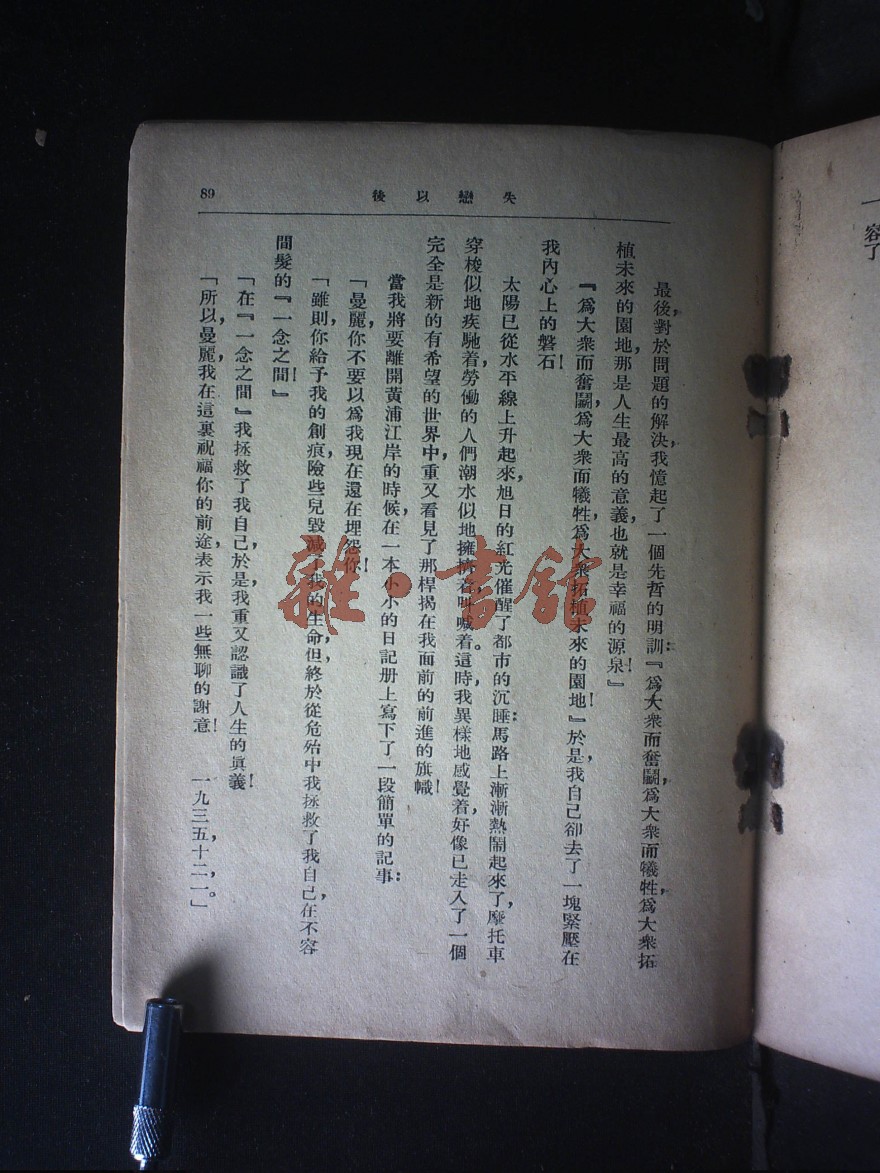 失戀以後
89
最後，對於問題的解決，我憶起了一個先哲的明訓：『爲大衆而奮鬭，爲大衆而犧牲，爲大衆拓
植未來的園地，那是人生最高的意義，也就是幸福的源泉！』
『爲大衆而奮鬭，爲大衆而犧牲，爲大衆拓植未來的園地！』於是，我自己卻去了一塊緊壓在
我內心上的磐石！
太陽已從水平線上升起來，旭日的紅光催醒了都市的沉睡：馬路上漸漸熱鬧起來了，摩托車
穿梭似地疾馳着，勞働的人們潮水似地擁擠着，叫喊着。這時，我異樣地感覺着，好像已走入了一個
完全是新的有希望的世界中，重又看見了那桿揭在我面前的前進的旗幟！
當我將要離開黃浦江岸的時候，在一本小小的日記册上寫下了一段簡單的記事：
「曼麗，你不要以爲我現在還在埋怨你！
「雖則，你給予我的創痕，險些兒毀滅了我的生命，但，終於從危殆中我拯救了我自己，在不容
間髮的『一念之間！』
「在『一念之間』我拯救了我自己，於是，我重又認識了人生的眞義！
「所以，曼麗，我在這裏祝福你的前途，表示我一些無聊的謝意！　一九三五，十二，一。」
雜·書館
一
容了